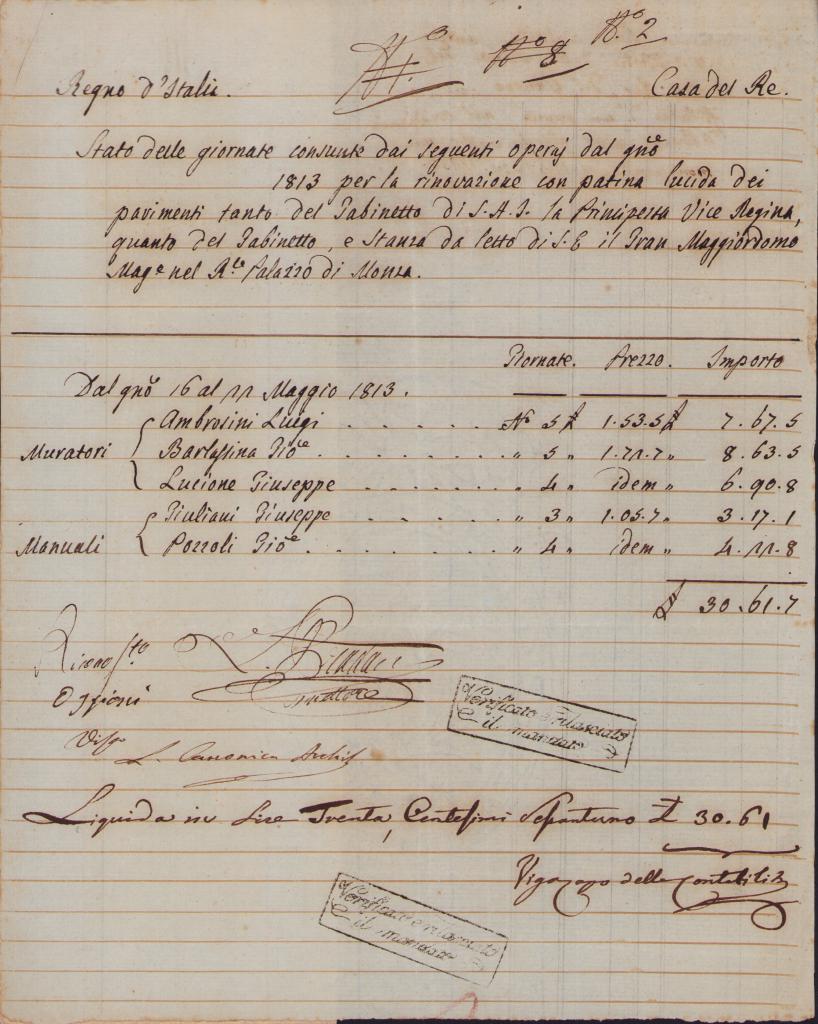 N.° N.° 8 N.° 2
Regno d'Italia. Casa del Re.
Stato delle giornate consunte dai seguenti operaj dal gno
1813 per la rinovazione con patina lucida dei
pavimenti tanto del Gabinetto di S. A. I. la Principessa Vice Regina,
quanto del Gabinetto, e Stanza da letto di S. E il Gran Maggiordomo
Mage nel R.le Palazzo di Monza.
Giornate. Prezzo. Importo
Dal gno 16 al 22 Maggio 1813.
Muratori
Ambrosini Luigi . . . . . N.° 5 £ 1.53.5 £ 7.67.5
Barlassina Gioe . . . . . . " 5 " 1.72.7 " 8.63.5
Lucione Giuseppe . . . . . " 4 " idem " 6.90.8
Manuali
Giuliani Giuseppe . . . . " 3 " 1.05.7 " 3.17.1
Pozzoli Gioe . . . . . . " 4 " idem " 4.22.8
£ 30.61.7
Fattore
Visto
L. Canonica Archit
Verificato e rilasciato
il mandato
Liquida in Lire Trenta, Centesimi Sessantuno £ 30.61
della Contabilità
Verificato e rilasciato
il mandato